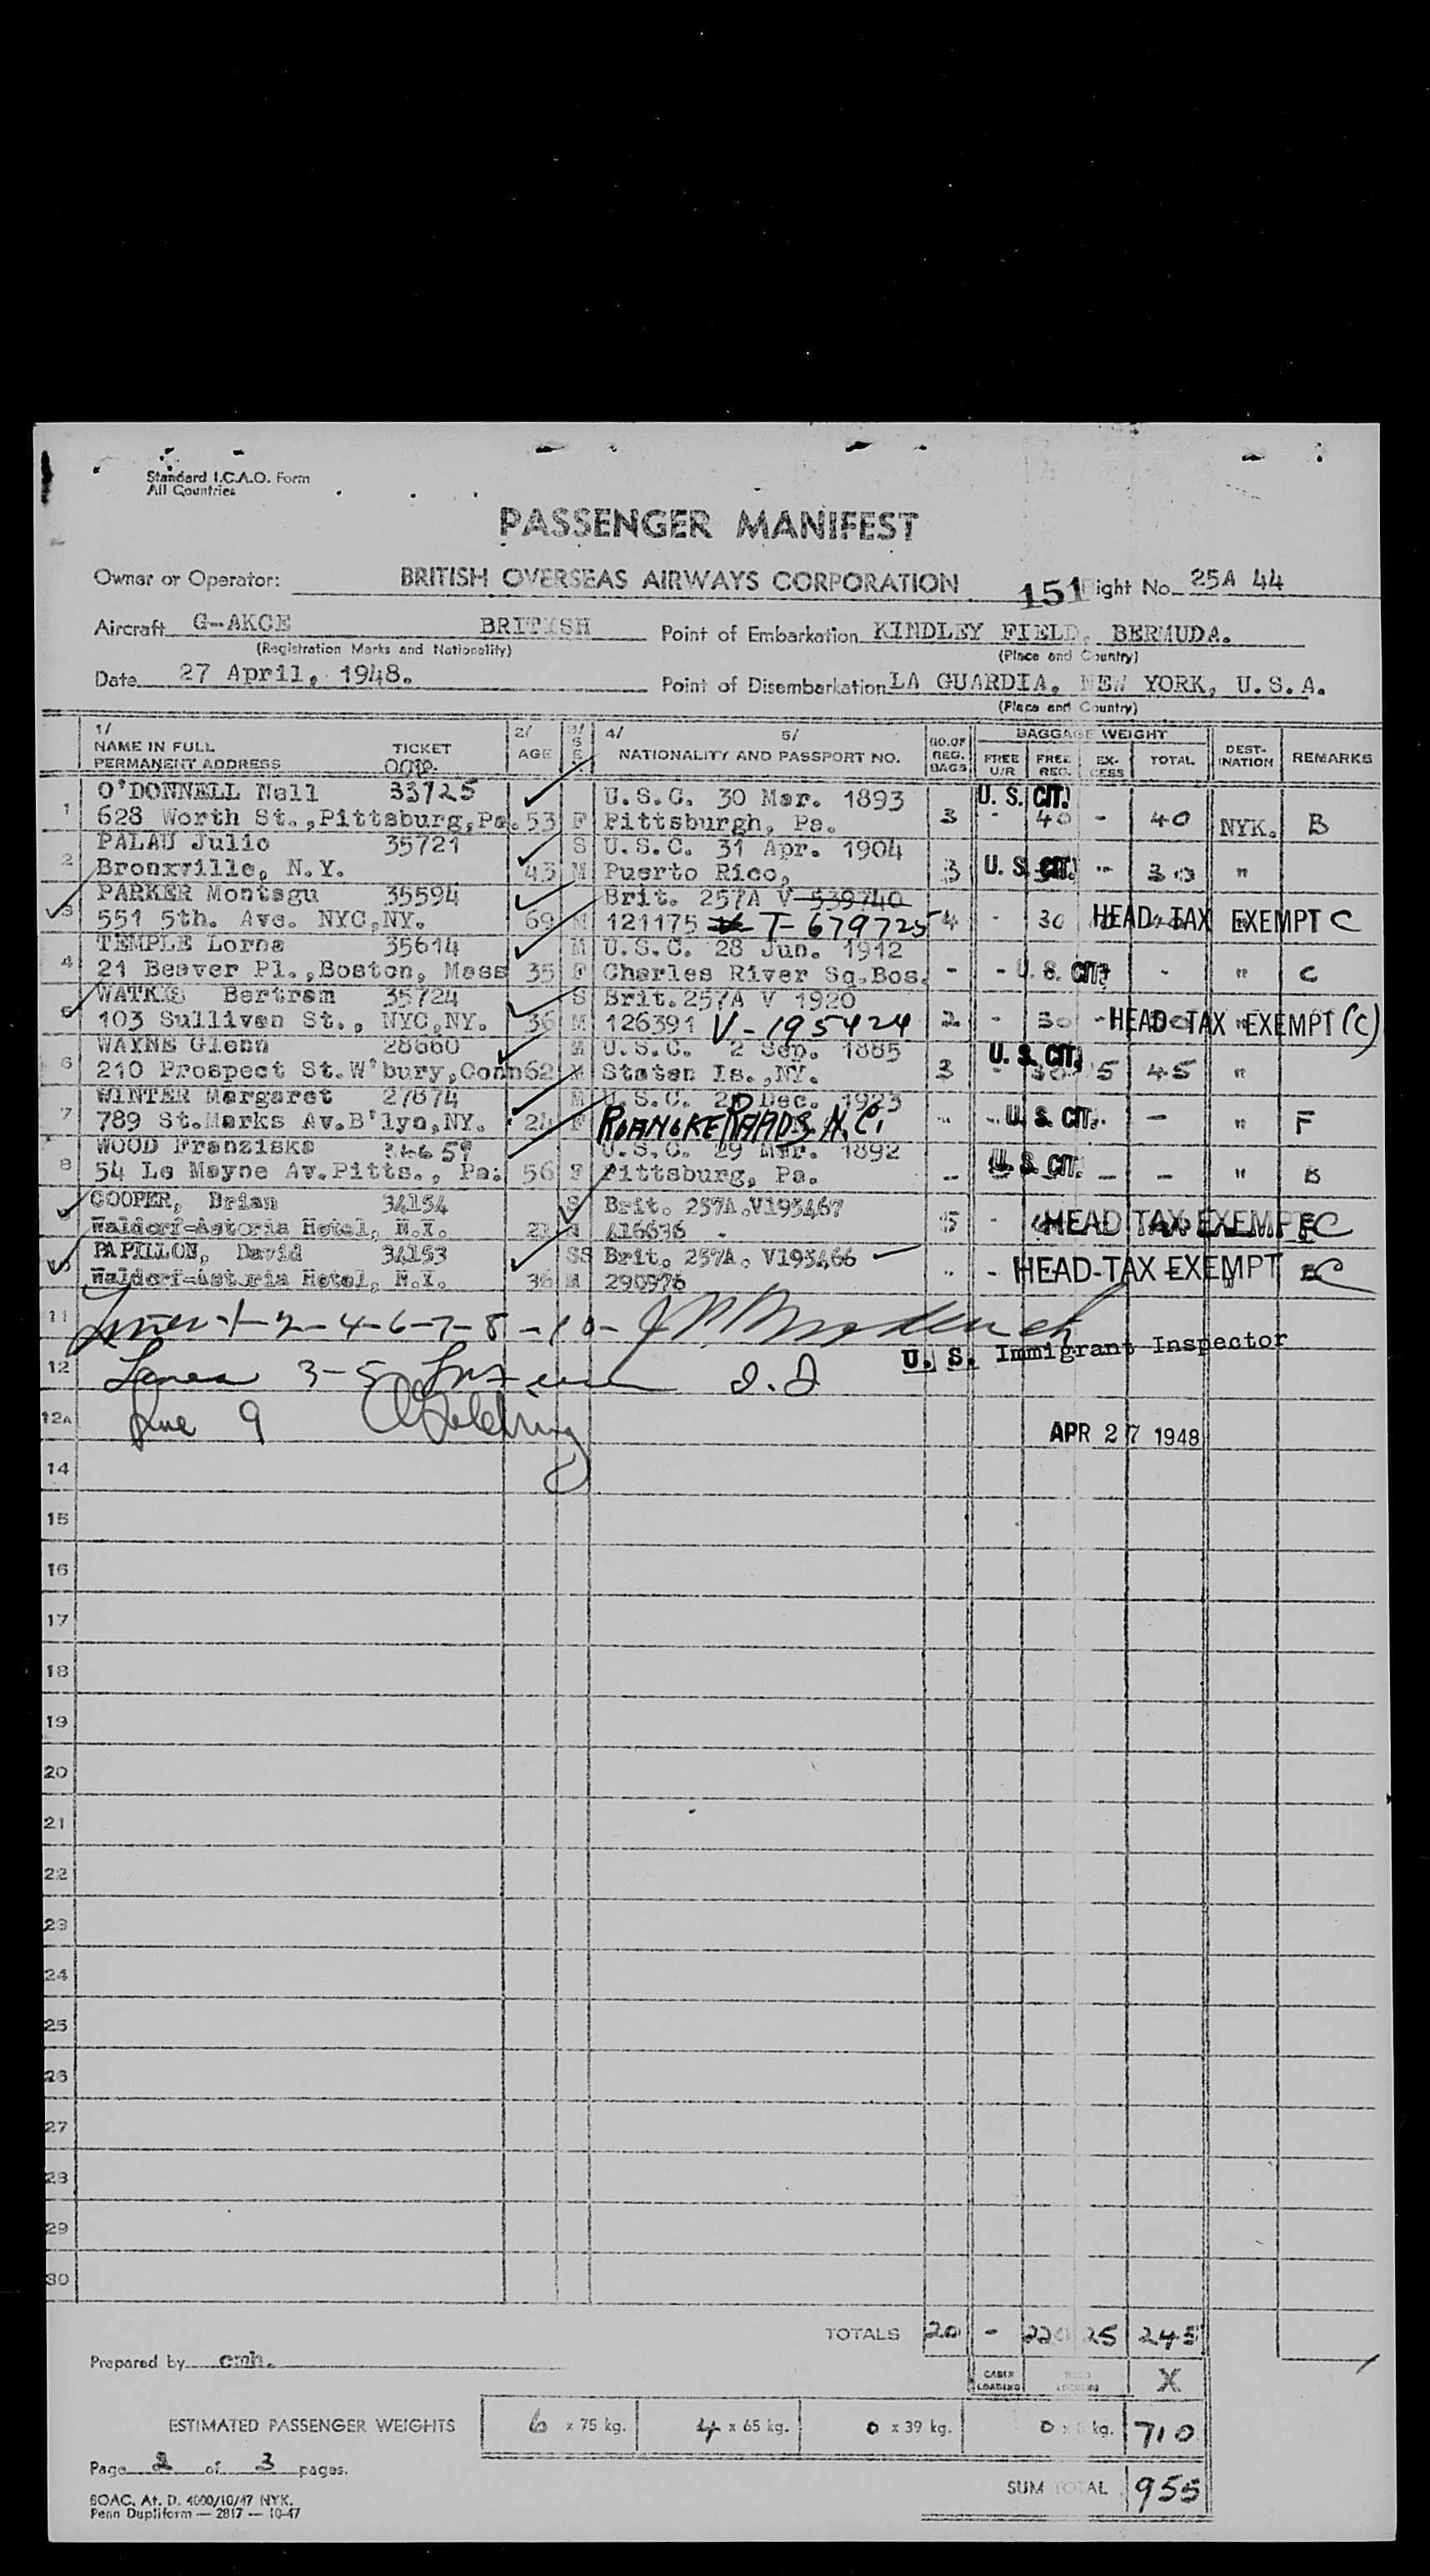 Standard I.C.A.O. Form
All Countries
PASSENGER MANIFEST
Owner or Operator: BRITISH OVERSEAS AIRWAYS CORPORATION 151 ight No. 25A 44
Aircraft G-AKCE BRITISH Point of Embarkation KINDLEY FIELD, BERMUDA.
(Registration Marks and Nationality) (Place and Country)
Date 27 April, 1948. Point of Disembarkation LA GUARDIA, NEW YORK, U.S.A.
(Place and Country)
1/ 2/ 3/ 4/ 5/
NAME IN FULL TICKET AGE SEX NATIONALITY AND PASSPORT NO. NO. OF REG. BAGS BAGGAGE WEIGHT DEST-INATION REMARKS
PERMANENT ADDRESS FREE U/R FREE REG. EX-CESS TOTAL
O'DONNELL Nell 33725 U.S.C. 30 Mar. 1893 U. S. CIT.
1 628 Worth St.,Pittsburg,Pa. 53 F Pittsburgh, Pa. 3 - 40 - 40 NYK. B
PALAU Julio 35721 S U.S.C. 31 Apr. 1904
2 Bronxville, N.Y. 43 M Puerto Rico, 3 U. S. CIT. - 30 "
PARKER Montagu 35594 Brit. 257A V 539740
3 551 5th. Ave. NYC,NY. 69 M 121175 T-679725 4 - 30 HEAD-TAX EXEMPT C
TEMPLE Lorna 35614 M U.S.C. 28 Jun. 1912
4 21 Beaver Pl.,Boston, Mass 35 F Charles River Sq.Bos. - - U. S. CIT. - " C
WATKIS Bertram 35724 S Brit.257A V 1920
5 103 Sullivan St., NYC,NY. 36 M 126391 V-195424 2 - 30 - HEAD TAX EXEMPT (C)
WAYNE Glenn 28660 M U.S.C. 2 Sep. 1885 U. S. CIT.
6 210 Prospect St.W'bury,Conn 62 M Staten Is.,NY. 3 - 30 15 45 "
WINTER Margaret 27874 M U.S.C. 20 Dec. 1923
7 789 St.Marks Av.B'lyn,NY. 24 F ROANOKE RAPIDS N.C. - - U. S. CIT. - " F
WOOD Franziska 34659 U.S.C. 29 Mar. 1892 U. S. CIT.
8 54 Le Moyne Av.Pitts., Pa. 56 F Pittsburg, Pa. - - - " B
COOPER, Brian 34154 S Brit. 257A.V195467
Waldorf-Astoria Hotel, N.Y. M 416636 5 - HEAD TAX EXEMPT C
PAPILLON, David 34153 SS Brit. 257A. V195466
Waldorf-Astoria Hotel, N.Y. 36 M 290976 - - HEAD-TAX EXEMPT C
11 Lines-1-2-4-6-7-8-10-
U. S. Immigrant Inspector
12 Lines 3-5
12A Line 9 APR 27 1948
14
15
16
17
18
19
20
21
22
23
24
25
26
27
28
29
30
TOTALS 20 - 220 25 245
Prepared by cmh. CABIN LOADING X
ESTIMATED PASSENGER WEIGHTS 6 x 75 kg. 4 x 65 kg. 0 x 39 kg. 0 x kg. 710
Page 2 of 3 pages.
SUM TOTAL 955
BOAC. At. D. 4000/10/47 NYK.
Penn Dupliform — 2817 — 10-47